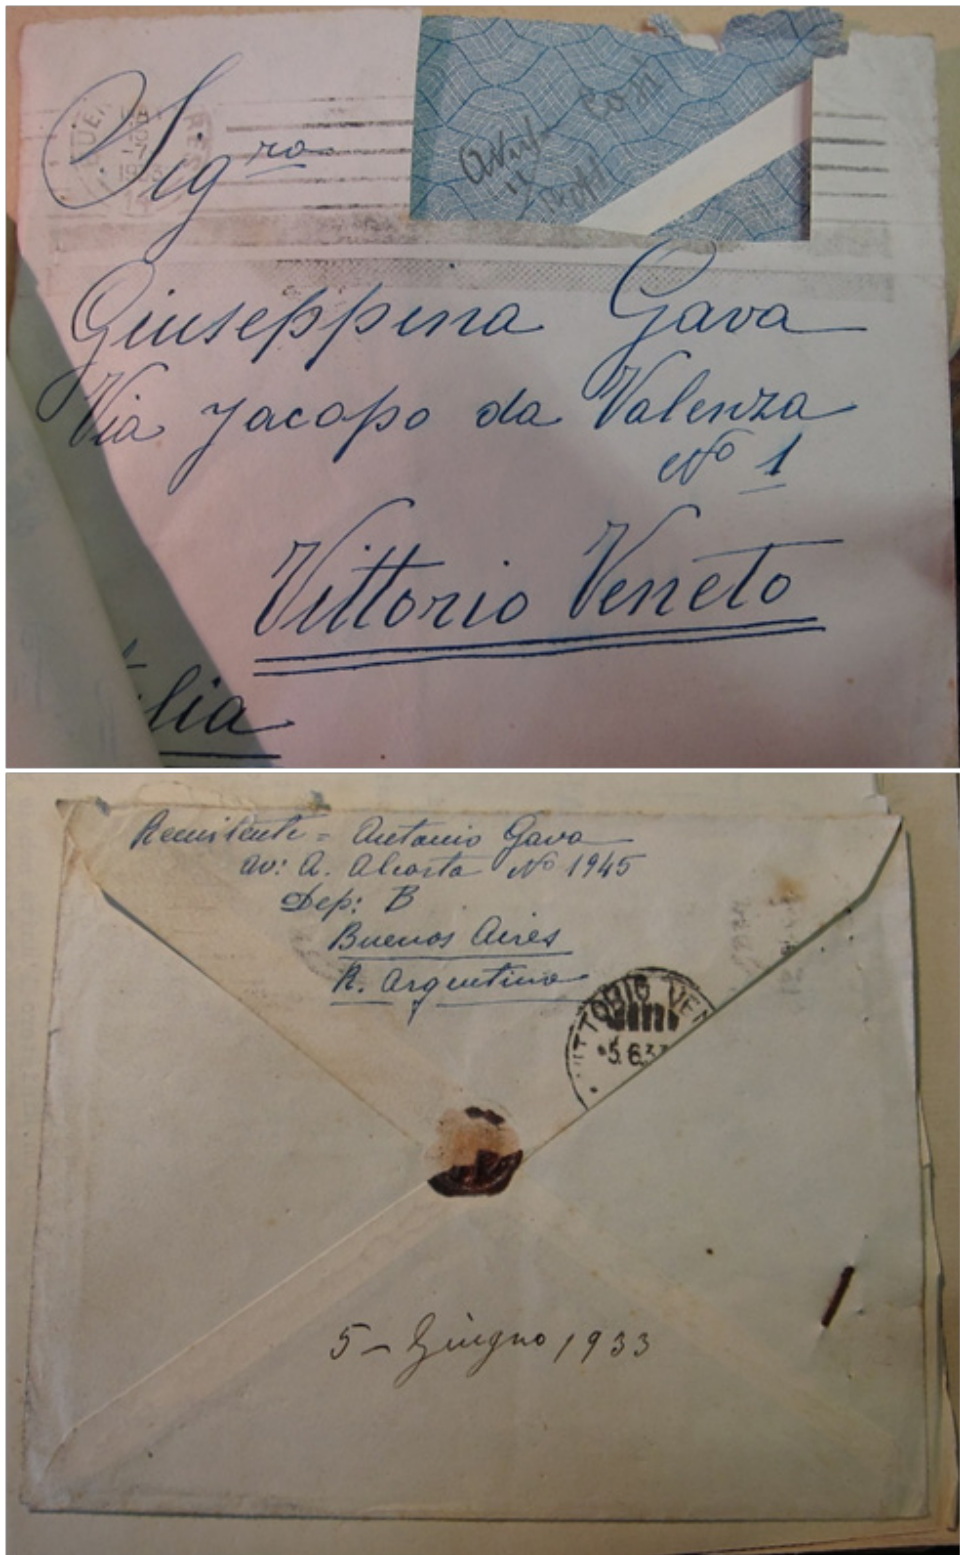 BUEN AIRES
1933
Sig.ra
così
Giuseppina Gava
Via Jacopo da Valenza
No 1
Vittorio Veneto
lia
Remitente = Antonio Gava
av: A. Alcorta No 1945
Dep: B
Buenos Aires
R. Argentina
VITTORIO VEN
5.6.33
5 - Giugno 1933